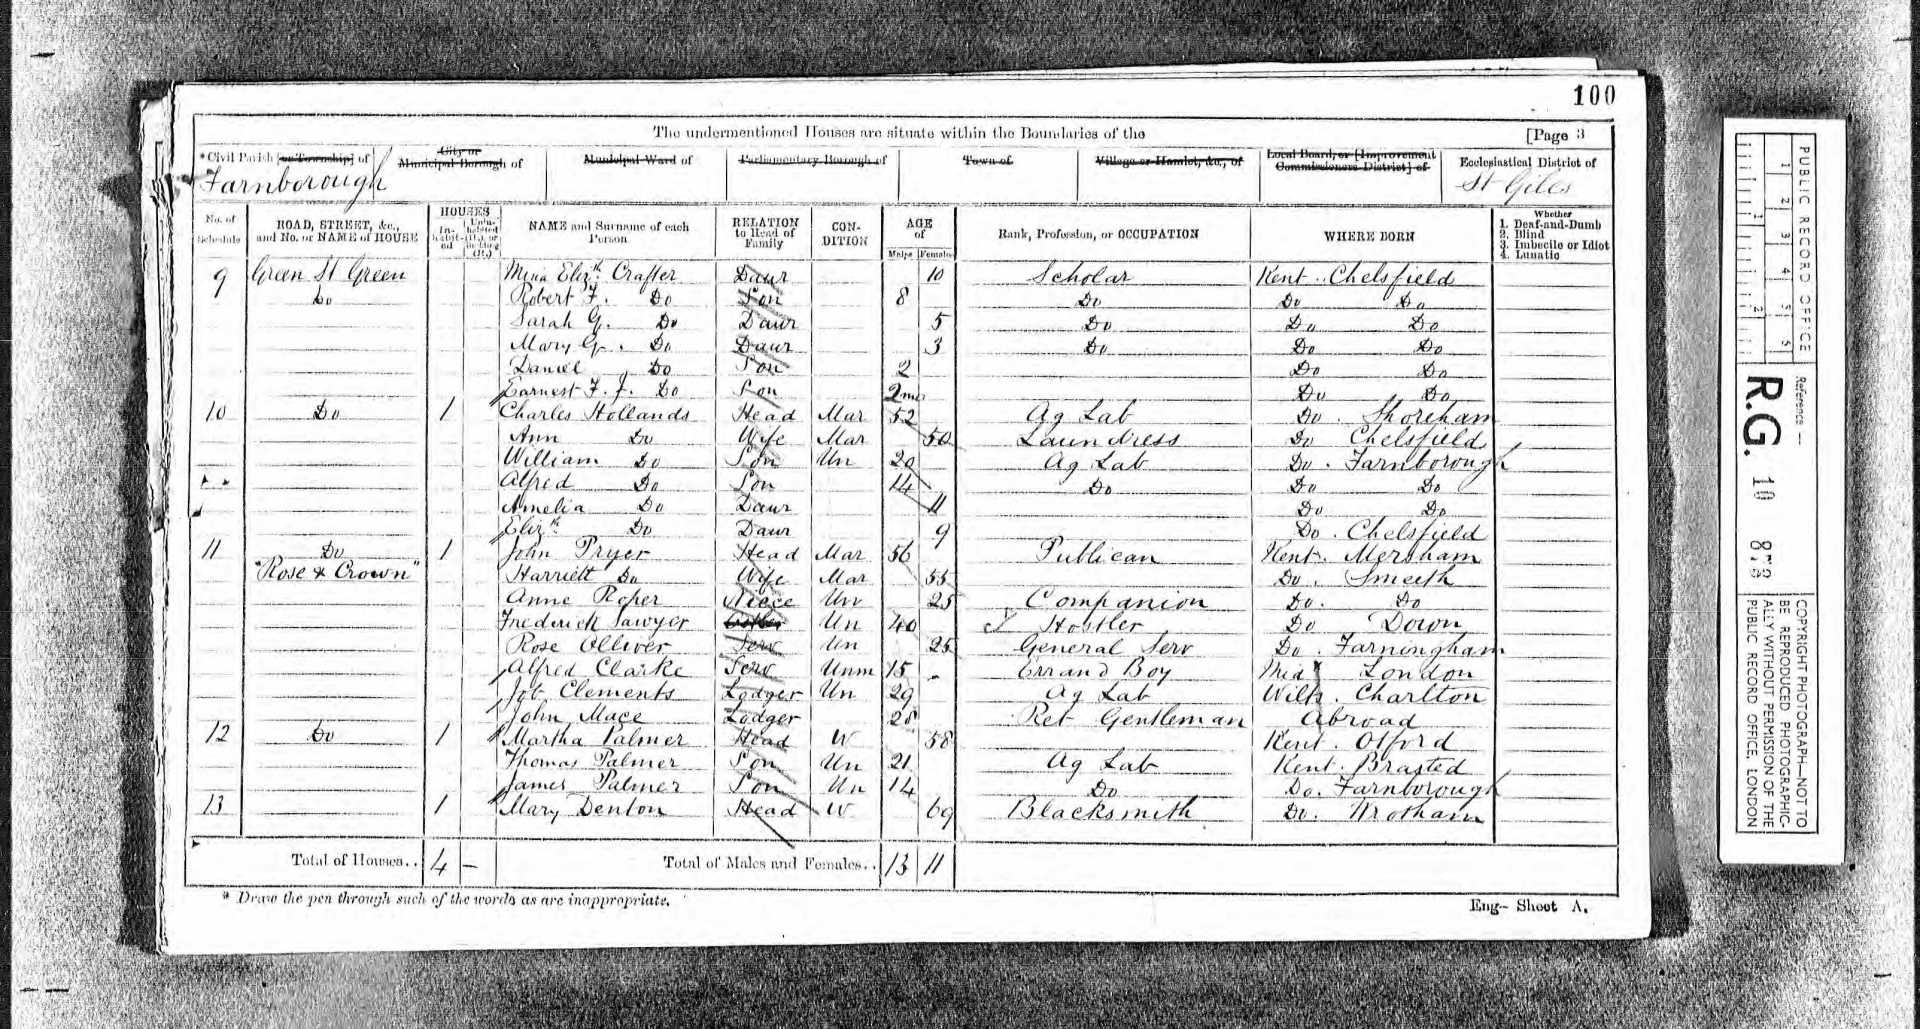 100
The undermentioned Houses are situate within the Boundaries of the [Page 3
*Civil Parish [or Township] of City or Municipal Borough of Municipal Ward of Parliamentary Borough of Town of Village or Hamlet, &c., of Local Board, or [Improvement Commissioners District] of Ecclesiastical District of
Farnborough St Giles
No. of Schedule ROAD, STREET, &c., and No. or NAME of HOUSE HOUSES In-habit-ed Unin-habited (U.), or Building (B.) NAME and Surname of each Person RELATION to Head of Family CON-DITION AGE of Males Females Rank, Profession, or OCCUPATION WHERE BORN Whether 1. Deaf-and-Dumb 2. Blind 3. Imbecile or Idiot 4. Lunatic
9 Green St Green Mina Elizth. Crafter Daur 10 Scholar Kent Chelsfield
Do Robert F. Do Son 8 Do Do Do
Sarah G. Do Daur 5 Do Do Do
Mary G. Do Daur 3 Do Do Do
Daniel Do Son 2 Do Do
Earnest F. J. Do Son 2mo Do Do
10 Do 1 Charles Hollands Head Mar 52 Ag Lab Do Shoreham
Ann Do Wife Mar 50 Laundress Do Chelsfield
William Do Son Un 20 Ag Lab Do. Farnborough
Alfred Do Son 14 Do Do Do
Amelia Do Daur 11 Do Do
Elizth Do Daur 9 Do. Chelsfield
11 Do 1 John Pryer Head Mar 56 Publican Kent. Mersham
"Rose & Crown" Harriett Do Wife Mar 55 Do. Smeeth
Anne Roper Niece Un 25 Companion Do. Do
Frederick Sawyer Un 40 Hostler Do Down
Rose Olliver Serv Un 25 General Serv Do. Farningham
Alfred Clarke Serv Unm 15 Errand Boy Midx London
Job Clements Lodger Un 29 Ag Lab Wilts. Charlton
John Mace Lodger 28 Ret Gentleman Abroad
12 Do 1 Martha Palmer Head W 58 Kent. Otford
Thomas Palmer Son Un 21 Ag Lab Kent. Brasted
James Palmer Son Un 14 Do Do. Farnborough
13 1 Mary Denton Head W 69 Blacksmith Do. Wrotham
Total of Houses.. 4 – Total of Males and Females.. 13 11
* Draw the pen through such of the words as are inappropriate.
Eng— Sheet A.
PUBLIC RECORD OFFICE
1 2 3 4 5
1 2
Reference:—
R.G. 10 873
COPYRIGHT PHOTOGRAPH—NOT TO
BE REPRODUCED PHOTOGRAPHIC-
ALLY WITHOUT PERMISSION OF THE
PUBLIC RECORD OFFICE, LONDON